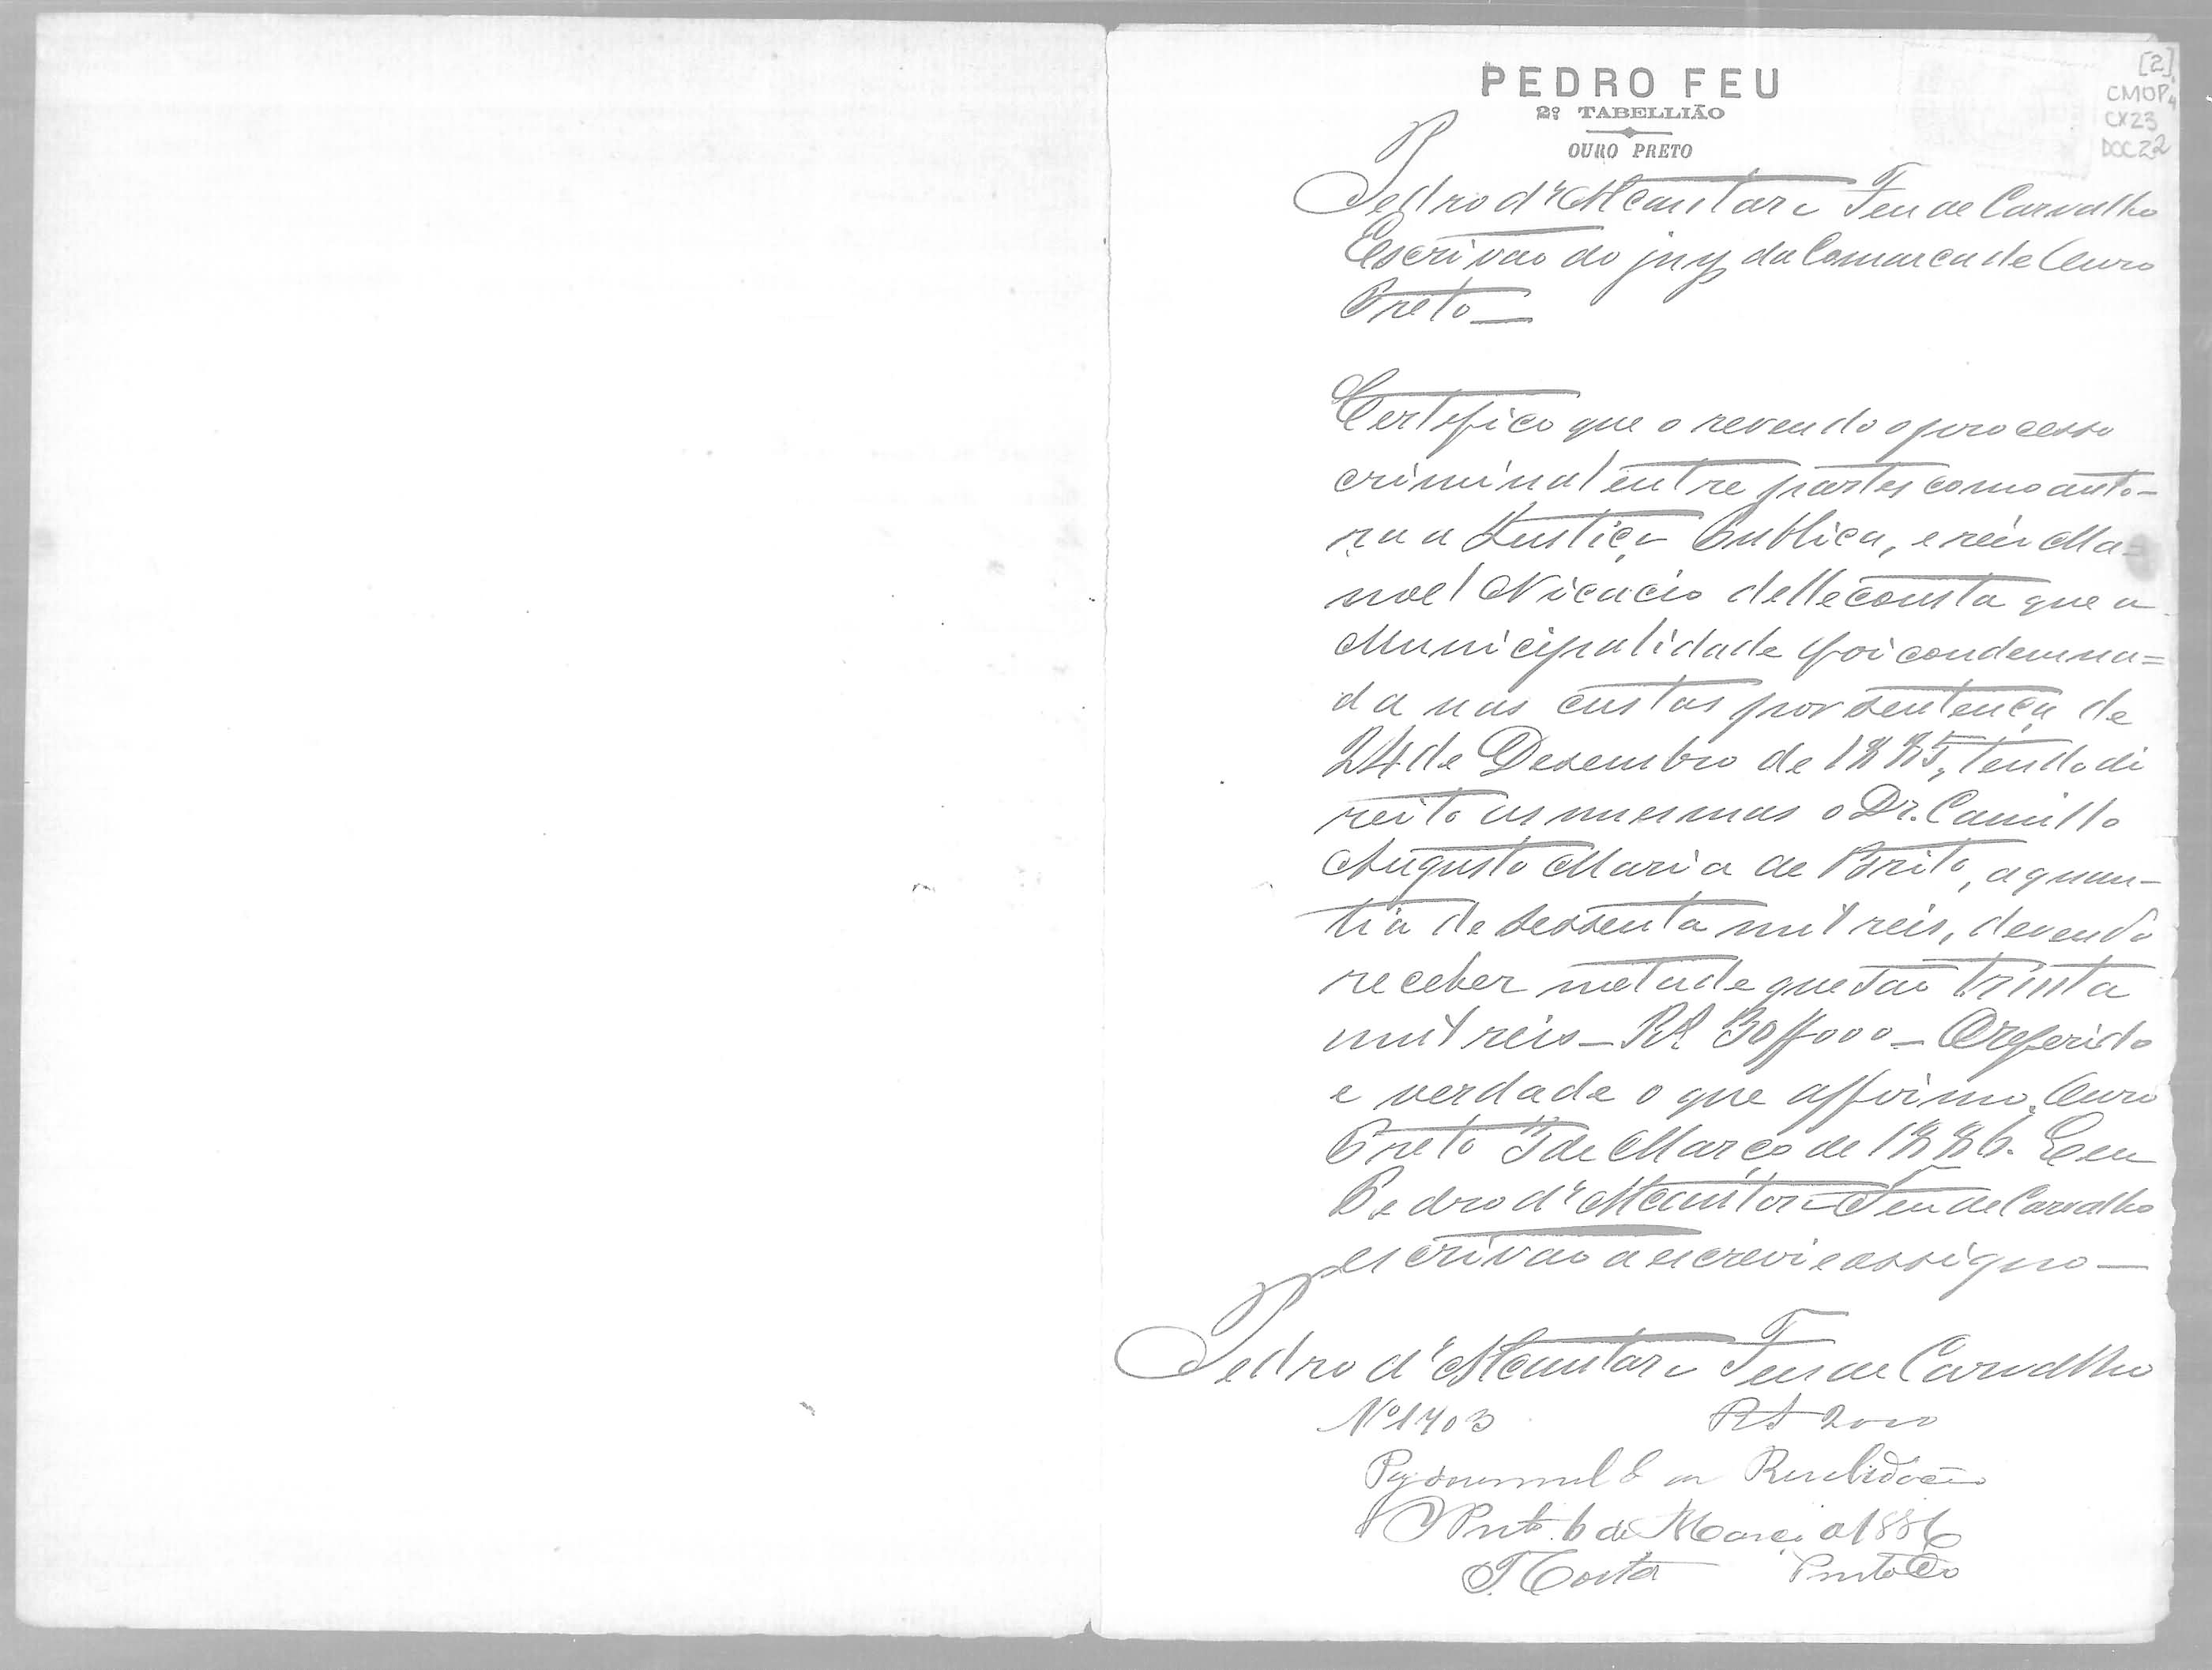 PEDRO FEU
2º TABELLIÃO
OURO PRETO
[2]
CMOP
CX23
DOC 22
Pedro d'Alcantara Feu de Carvalho
Escrivão do jury da Comarca de Ouro
Preto—
Certifico que o revendo o processo
criminal entre partes como auto-
ra a Justiça Publica, e réu Ma=
noel Nicacio delle consta que a
Municipalidade foi condemna=
da nas custas por sentença de
24 de Desembro de 1885, tendo di
reito as mesmas o Dr. Camillo
Augusto Maria de Brito, a quan-
tia de sessenta mil reis, devendo
receber metade que são trinta
mil reis— Rs 30$000— O referido
e verdade o que affirmo. Ouro
Preto 5 de Março de 1886. Eeu
Pedro d'Alcantara Feu de Carvalho
escrivão a escrevi e assigno—
Pedro d'Alcantara Feu de Carvalho
Nº 1403 Rs 200
Pg
O Preto 6 de Março d 1886
T. Costa